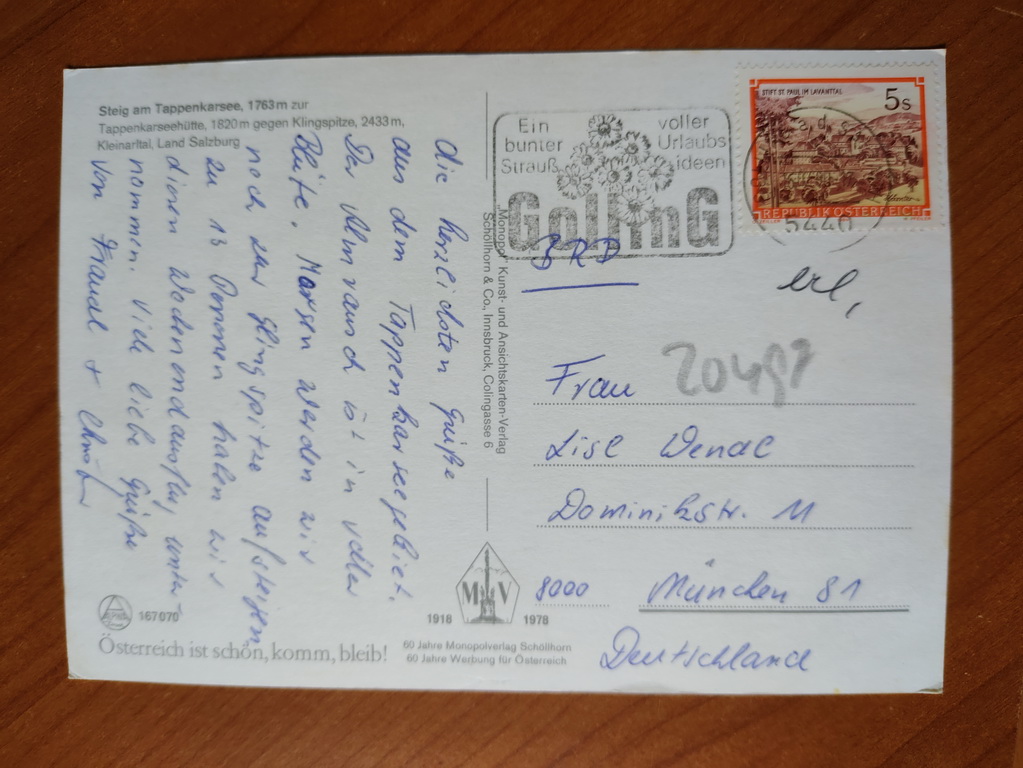 Steig am Tappenkarsee, 1763 m zur
Tappenkarseehütte, 1820 m gegen Klingspitze, 2433 m,
Kleinarltal, Land Salzburg
die herzlichsten Grüße
aus dem Tappenkarseegebiet.
Der Almrausch ist in voller
Blüte. Morgen werden wir
noch zur Klingspitze aufsteigen,
zu 13 Personen haben wir
diesen Wochenendausflug unter-
nommen. Viele liebe Grüße
von Traudl +
167070
Österreich ist schön, komm, bleib!
„Monopol" Kunst- und Ansichtskarten-Verlag
Schöllhorn & Co., Innsbruck, Colingasse 6
M V
1918 1978
60 Jahre Monopolverlag Schöllhorn
60 Jahre Werbung für Österreich
Ein bunter Strauß
voller Urlaubs ideen
GollinG
STIFT ST. PAUL IM LAVANTTAL
5 S
REPUBLIK ÖSTERREICH
5440
BRD
erl,
Frau
Lise Wendl
Dominikstr. 11
8000 München 81
Deutschland